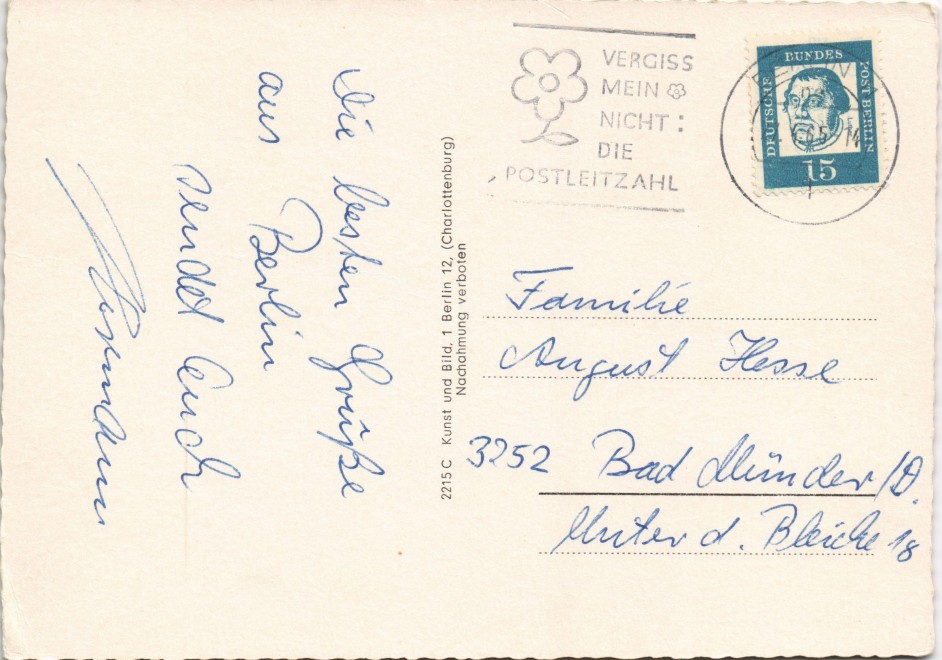 Die besten Grüße
aus Berlin
sendet Euch
2215 C Kunst und Bild, 1 Berlin 12, (Charlottenburg)
Nachahmung verboten
VERGISS
MEIN
NICHT:
DIE
POSTLEITZAHL
BERLIN
DEUTSCHE BUNDESPOST BERLIN
15
Familie
August Hesse
3252 Bad Münder/D.
Unter d. Bleiche 18